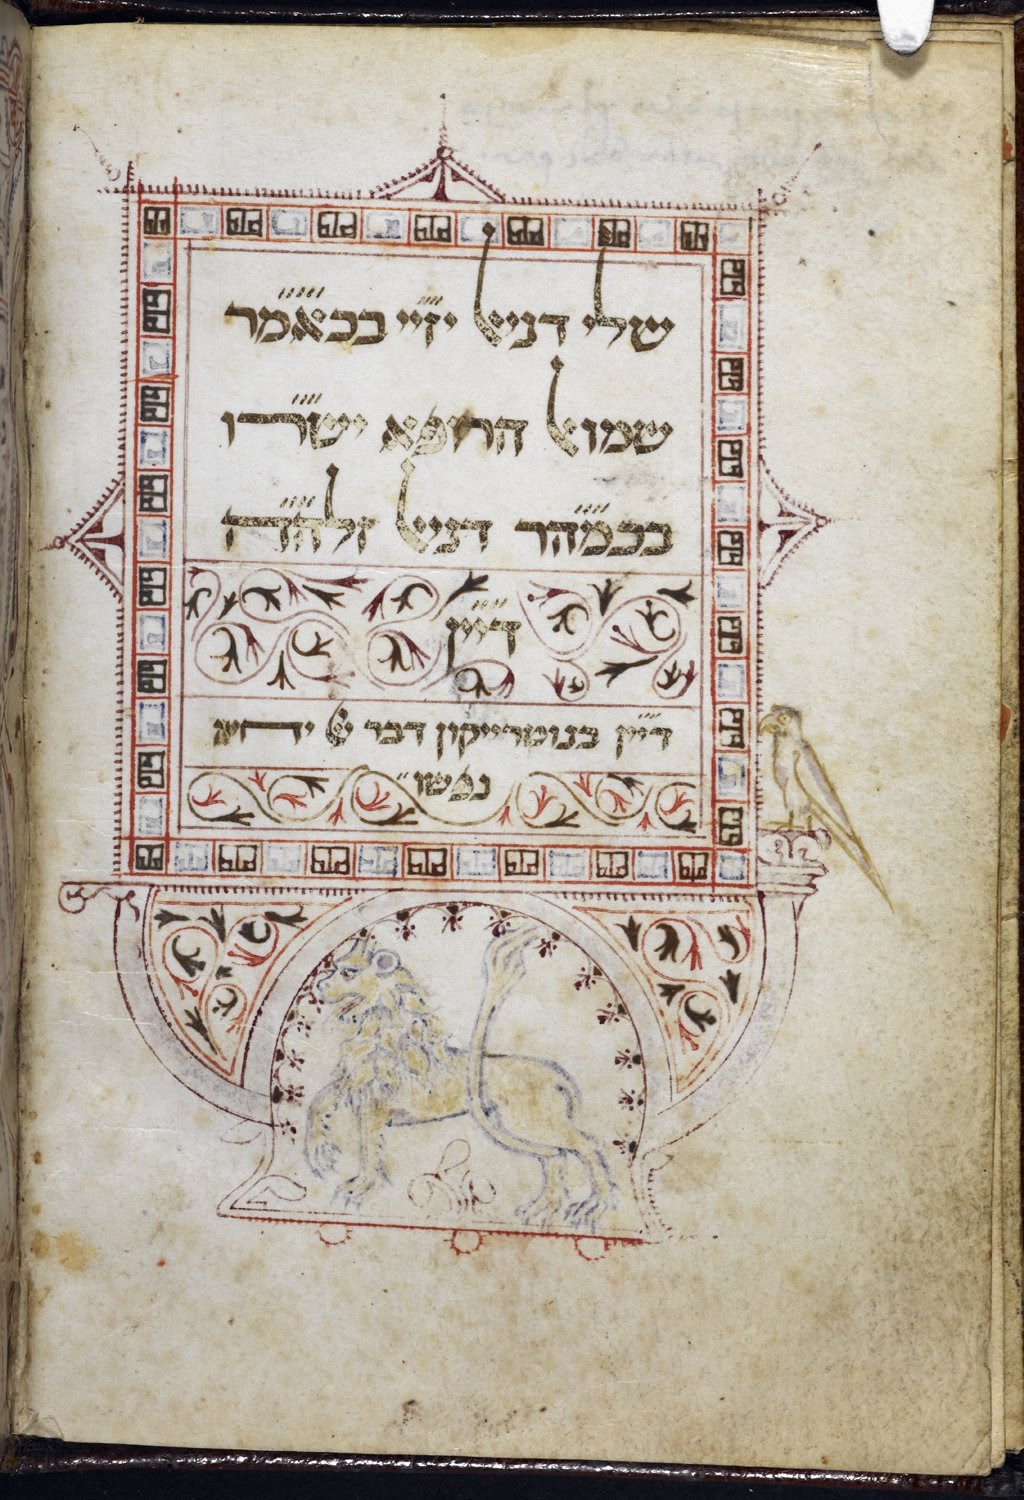 שלי דניאל יזיי בכאמר
שמואל הרופא ישרו
בכמהר דניאל זלהה
דיין
דיין בנוטרייקון דבר אל יחוש
נפשו